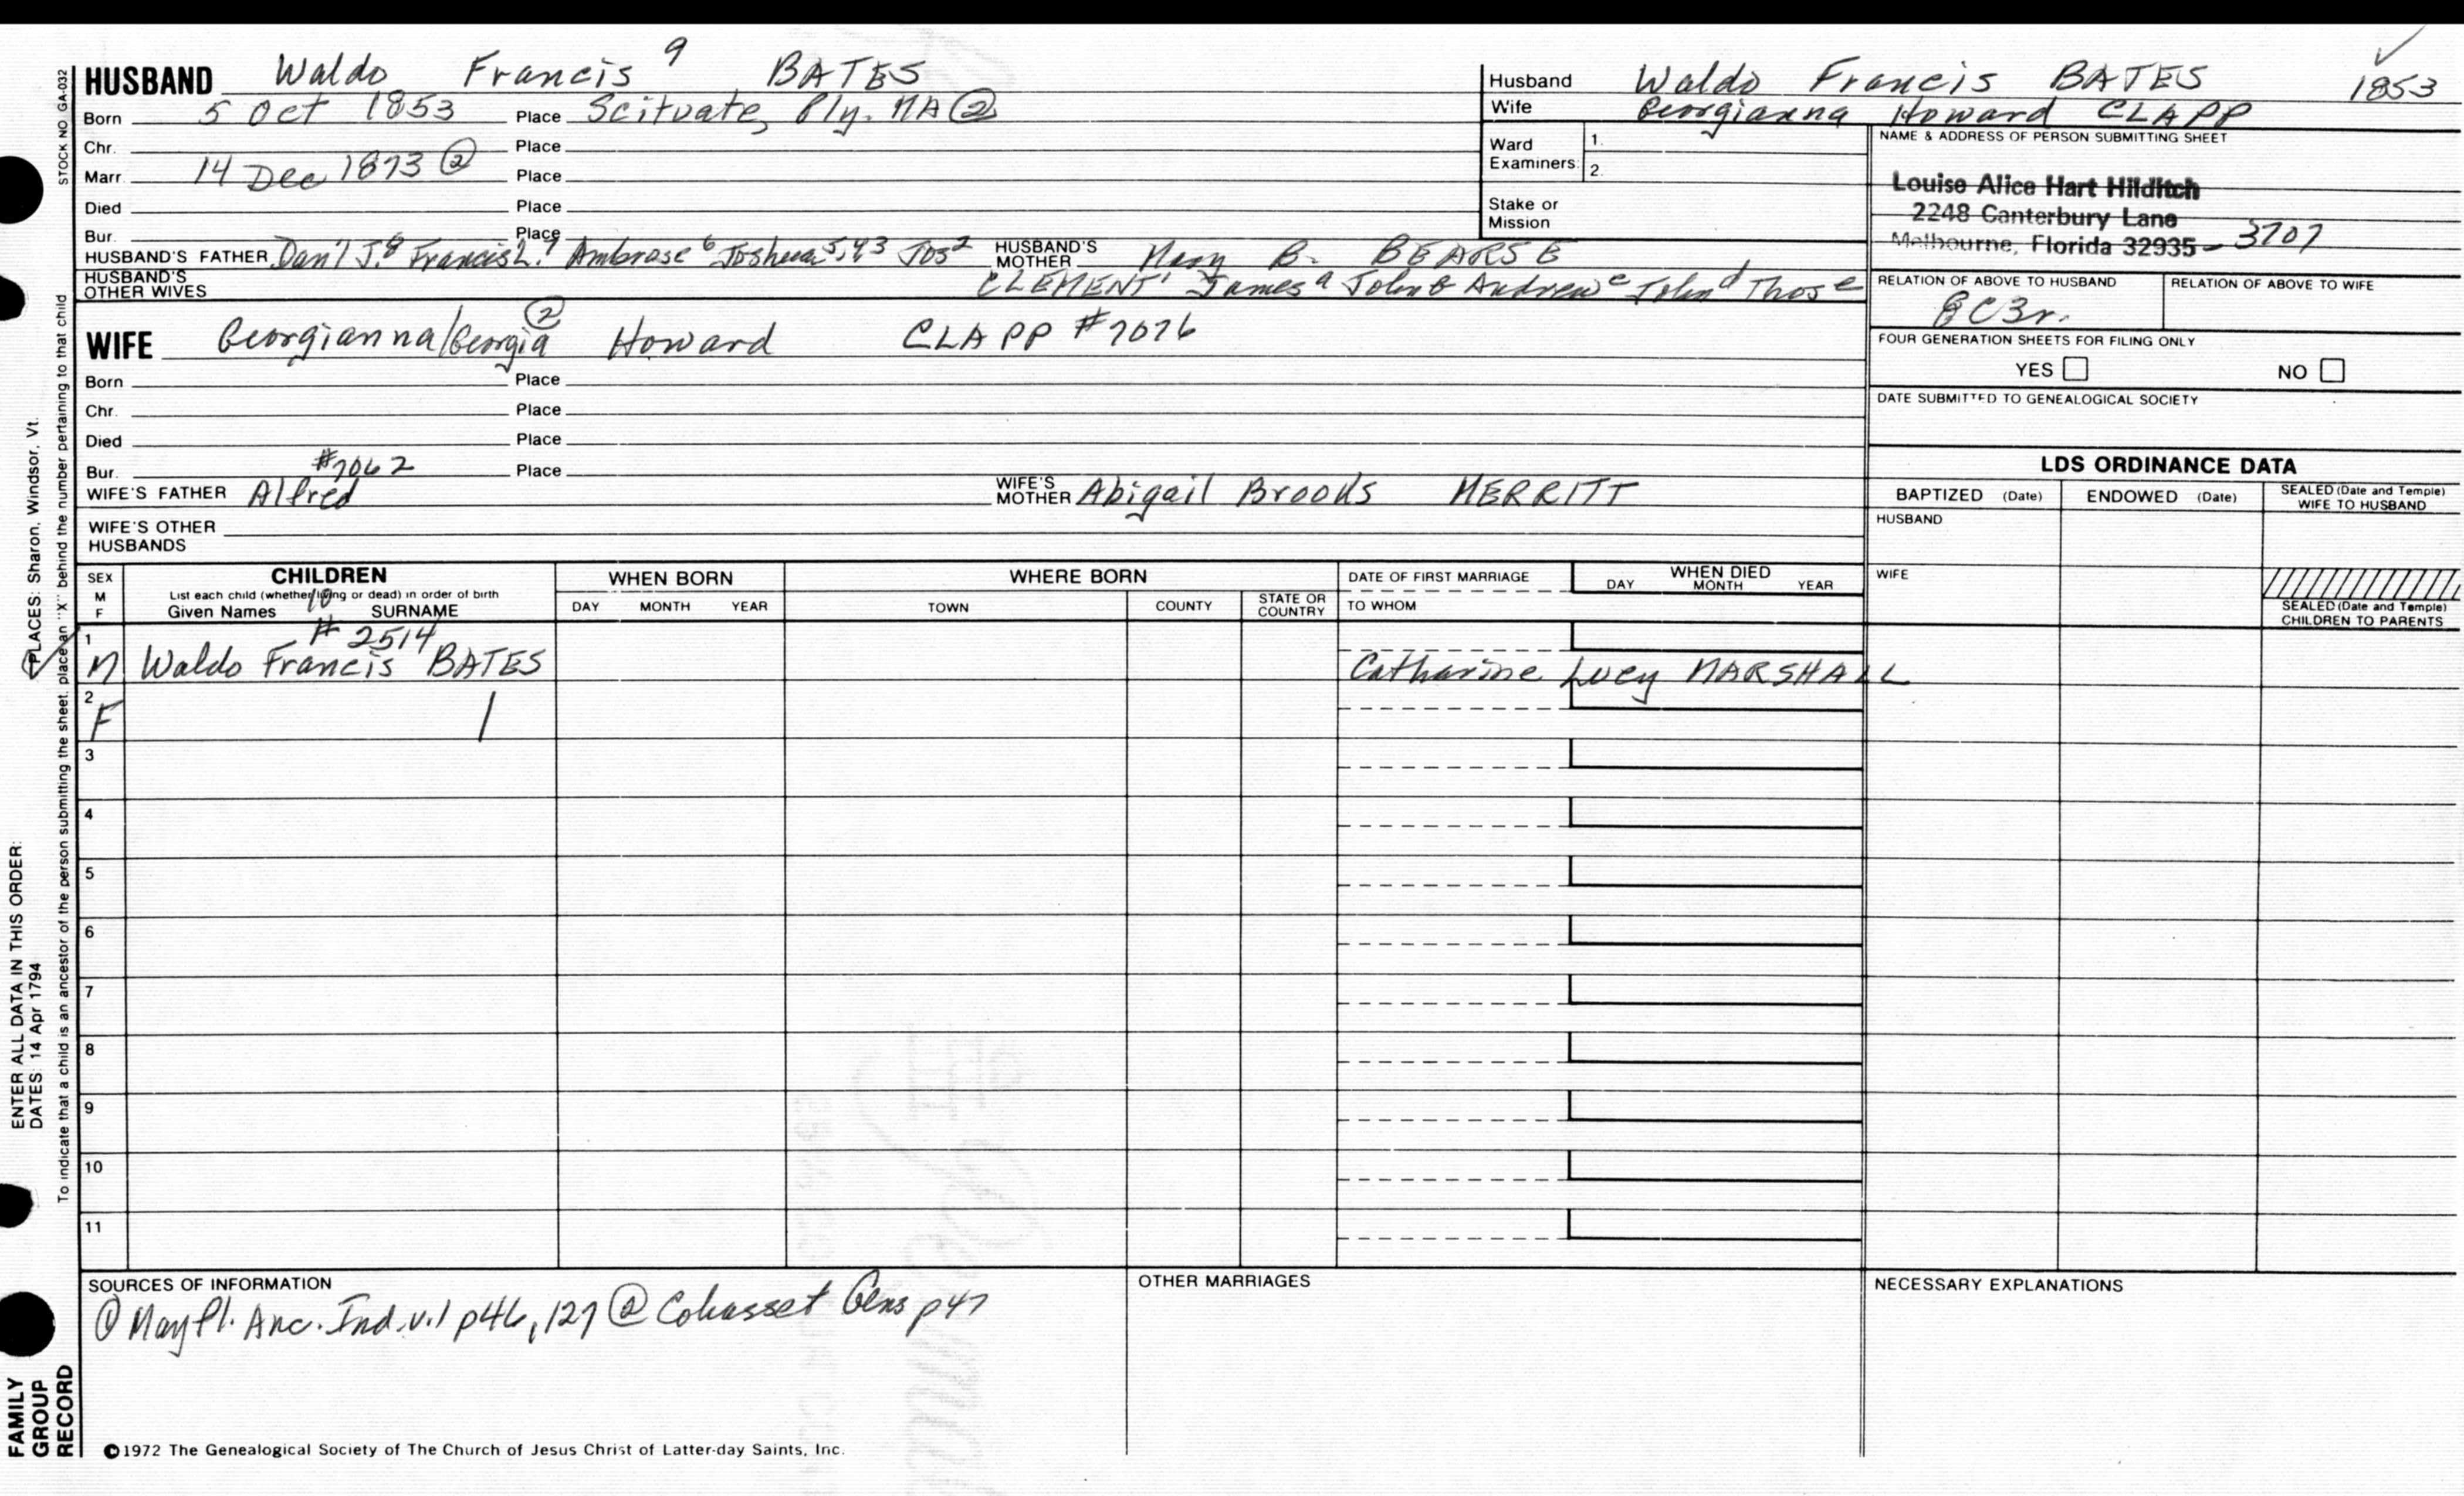 HUSBAND Waldo Francis 9 BATES
Born 5 Oct 1853 Place Scituate, Ply. MA ②
Chr. Place
Marr. 14 Dec 1873 ② Place
Died Place
Bur. Place
HUSBAND'S FATHER Dan'l J.8 Francis L.7 Ambrose 6 Joshua 5,4,3 Jos2 HUSBAND'S MOTHER Mary B. BEARSE
HUSBAND'S OTHER WIVES CLEMENT1 James a John b Andrew c John d Thos e
WIFE Georgianna/Georgia ② Howard CLAPP #7076
Born Place
Chr. Place
Died Place
Bur. Place
#7062
WIFE'S FATHER Alfred WIFE'S MOTHER Abigail Broods MERRITT
WIFE'S OTHER HUSBANDS
Husband Waldo Francis BATES 1853
Wife Georgianna Howard CLAPP
Ward Examiners: 1. 2.
Stake or Mission
NAME & ADDRESS OF PERSON SUBMITTING SHEET
Louise Alice Hart Hilditch
2248 Canterbury Lane
Melbourne, Florida 32935 - 3707
RELATION OF ABOVE TO HUSBAND RELATION OF ABOVE TO WIFE
8C3r.
FOUR GENERATION SHEETS FOR FILING ONLY
YES NO
DATE SUBMITTED TO GENEALOGICAL SOCIETY
LDS ORDINANCE DATA
BAPTIZED (Date) ENDOWED (Date) SEALED (Date and Temple) WIFE TO HUSBAND
HUSBAND
WIFE
SEALED (Date and Temple) CHILDREN TO PARENTS
SEX M F CHILDREN WHEN BORN WHERE BORN DATE OF FIRST MARRIAGE WHEN DIED
List each child (whether living or dead) in order of birth
Given Names 10 SURNAME DAY MONTH YEAR TOWN COUNTY STATE OR COUNTRY TO WHOM DAY MONTH YEAR
# 2514
1 M Waldo Francis BATES Catharine Lucy MARSHALL
2 F |
3
4
5
6
7
8
9
10
11
SOURCES OF INFORMATION
① Mayfl. Anc. Ind. v.1 p46, 127 ② Cohasset Gens p47
OTHER MARRIAGES
NECESSARY EXPLANATIONS
©1972 The Genealogical Society of The Church of Jesus Christ of Latter-day Saints, Inc.
STOCK NO. GA-032
To indicate that a child is an ancestor of the person submitting the sheet, place an "X" behind the number pertaining to that child
ENTER ALL DATA IN THIS ORDER:
DATES: 14 Apr 1794
PLACES: Sharon, Windsor, Vt.
FAMILY GROUP RECORD